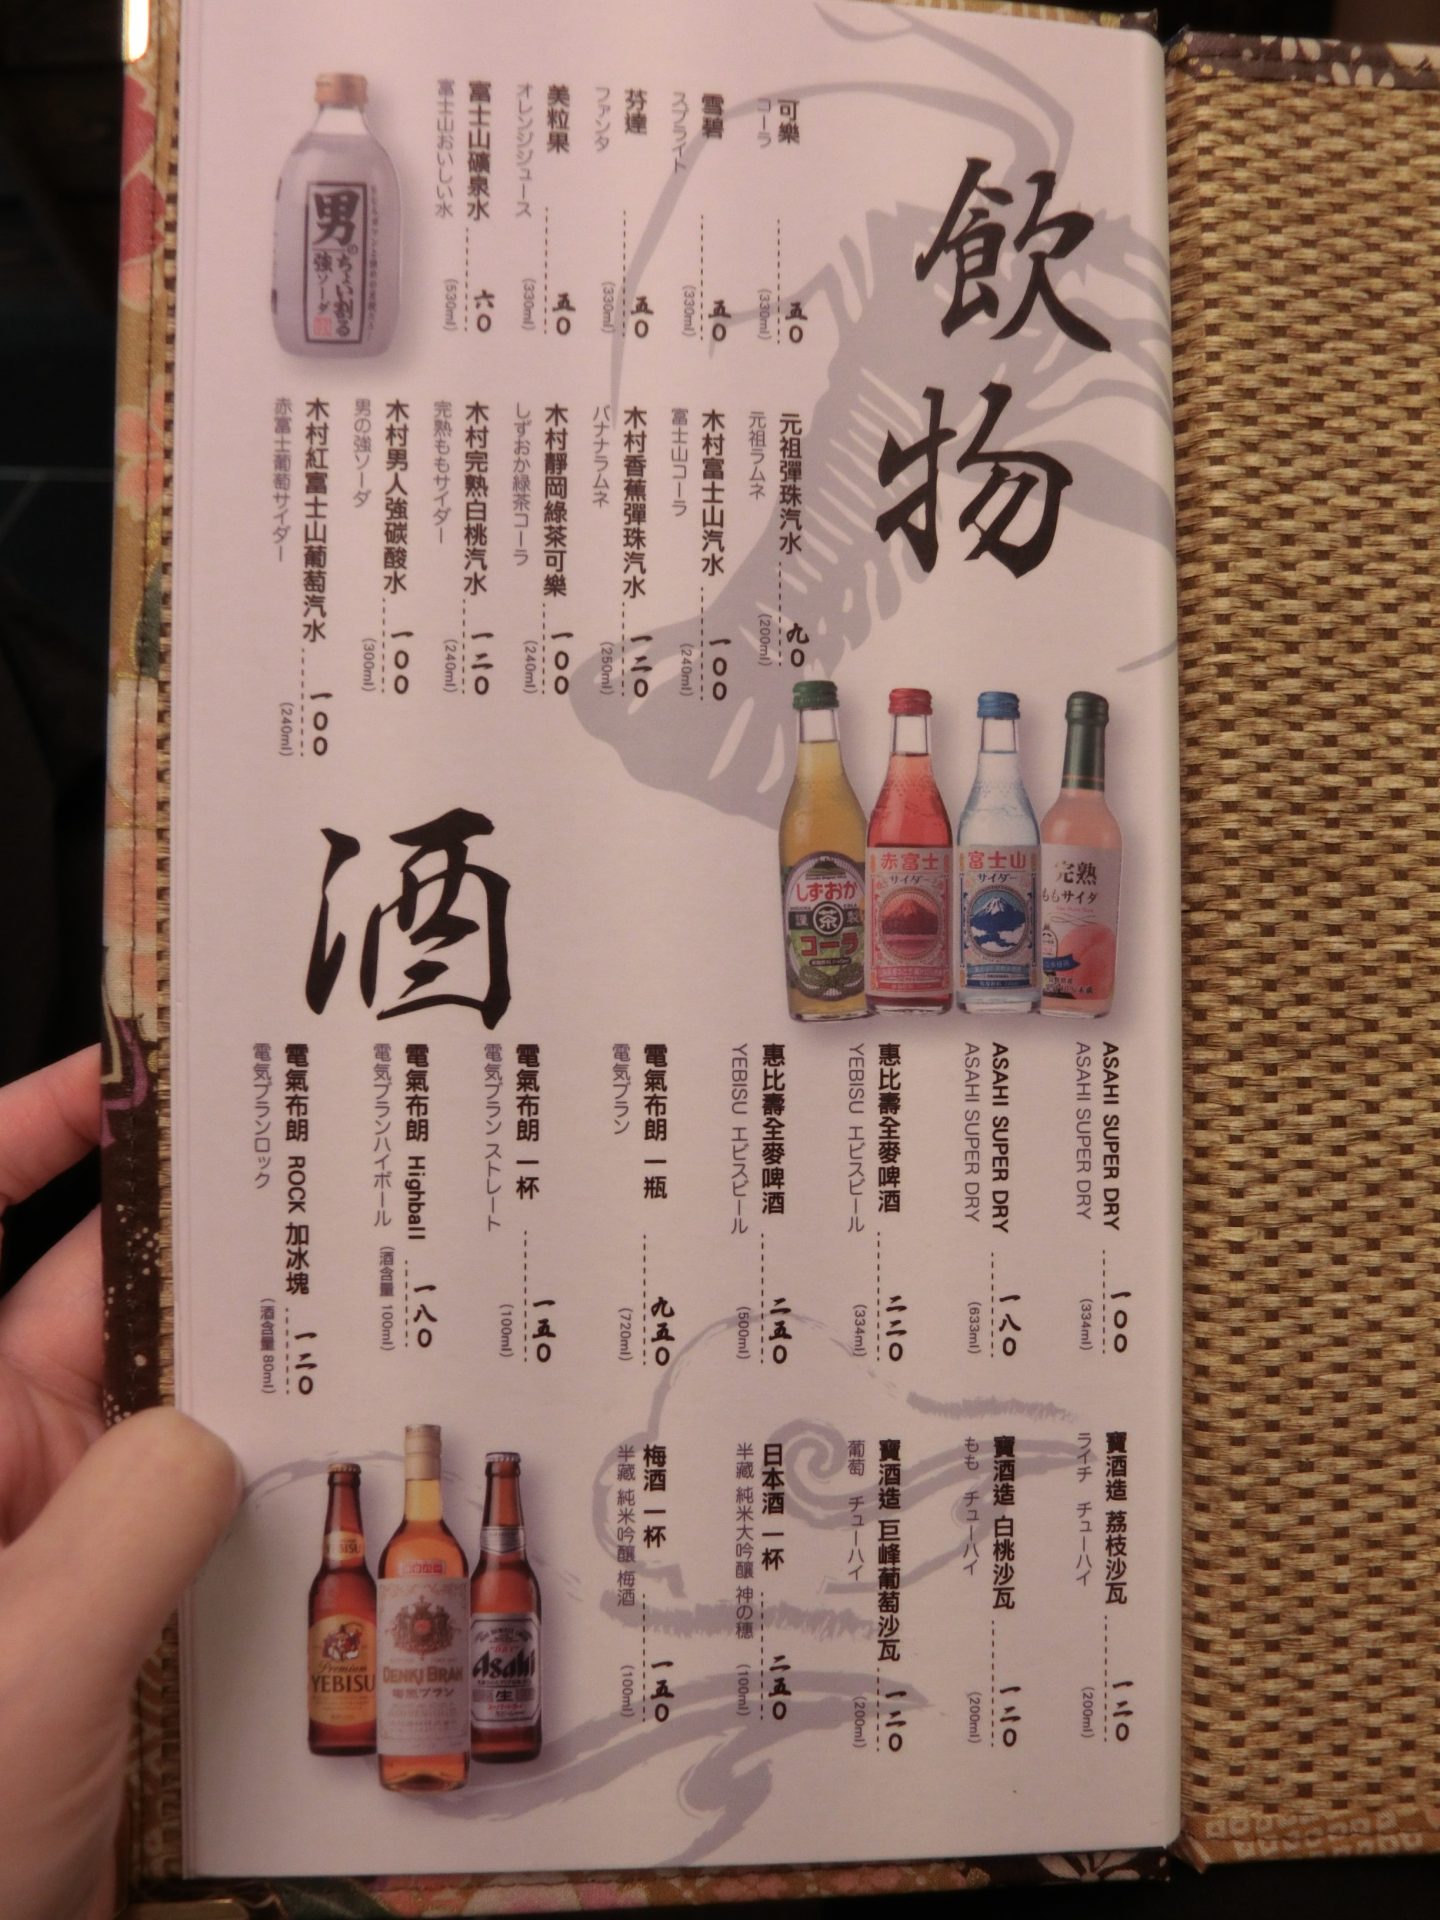 飲物
可樂
コーラ
五〇
(330ml)
雪碧
スプライト
五〇
(330ml)
芬達
ファンタ
五〇
(330ml)
美粒果
オレンジジュース
五〇
(330ml)
富士山礦泉水
富士山おいしい水
六〇
(530ml)
元祖彈珠汽水
元祖ラムネ
九〇
(200ml)
木村富士山汽水
富士山コーラ
一〇〇
(240ml)
木村香蕉彈珠汽水
バナナラムネ
一二〇
(250ml)
木村靜岡綠茶可樂
しずおか緑茶コーラ
一〇〇
(240ml)
木村完熟白桃汽水
完熟ももサイダー
一二〇
(240ml)
木村男人強碳酸水
男の強ソーダ
一〇〇
(300ml)
木村紅富士山葡萄汽水
赤富士葡萄サイダー
一〇〇
(240ml)
男の
ちょい割る
強ソーダ
しずおか
謹 茶 製
コーラ
赤富士
サイダー
富士山
サイダー
完熟
ももサイダ
酒
ASAHI SUPER DRY
ASAHI SUPER DRY
一〇〇
(334ml)
ASAHI SUPER DRY
ASAHI SUPER DRY
一八〇
(633ml)
惠比壽全麥啤酒
YEBISU エビスビール
二二〇
(334ml)
惠比壽全麥啤酒
YEBISU エビスビール
二五〇
(500ml)
電氣布朗 一瓶
電気ブラン
九五〇
(720ml)
電氣布朗 一杯
電気ブラン ストレート
一五〇
(100ml)
電氣布朗 Highball
電気ブランハイボール
一八〇
(酒含量 100ml)
電氣布朗 ROCK 加冰塊
電気ブランロック
一二〇
(酒含量 80ml)
寶酒造 荔枝沙瓦
ライチ チューハイ
一二〇
(200ml)
寶酒造 白桃沙瓦
もも チューハイ
一二〇
(200ml)
寶酒造 巨峰葡萄沙瓦
葡萄 チューハイ
一二〇
(200ml)
日本酒 一杯
半藏 純米大吟釀 神の穂
二五〇
(100ml)
梅酒 一杯
半藏 純米吟釀 梅酒
一五〇
(100ml)
Premium
YEBISU
DENKI BRAN
電気ブラン
Asahi
生